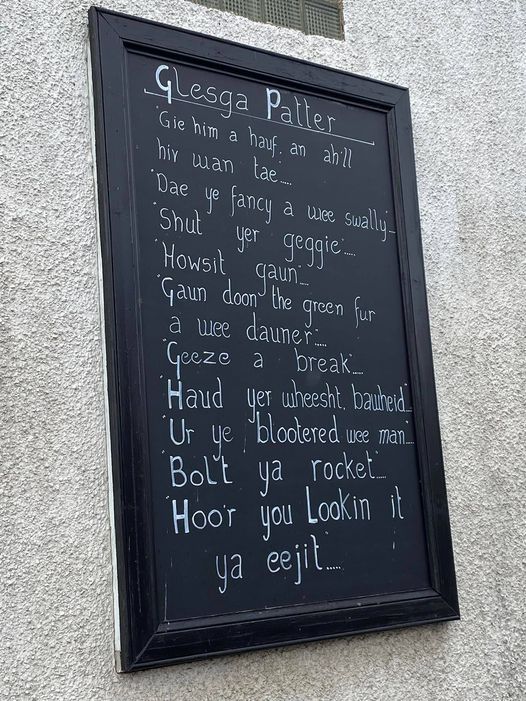 Glesga Patter
"Gie him a hauf. an ah'll
hiv wan tae".....
"Dae ye fancy a wee swally"...
"Shut yer geggie".....
"Howsit gaun"....
"Gaun doon the green fur
a wee dauner".....
"Geeze a break".....
"Haud yer wheesht, bawheid"...
"Ur ye blootered wee man"....
"Bolt ya rocket"....
"Hoo'r you Lookin it
ya eejit".....